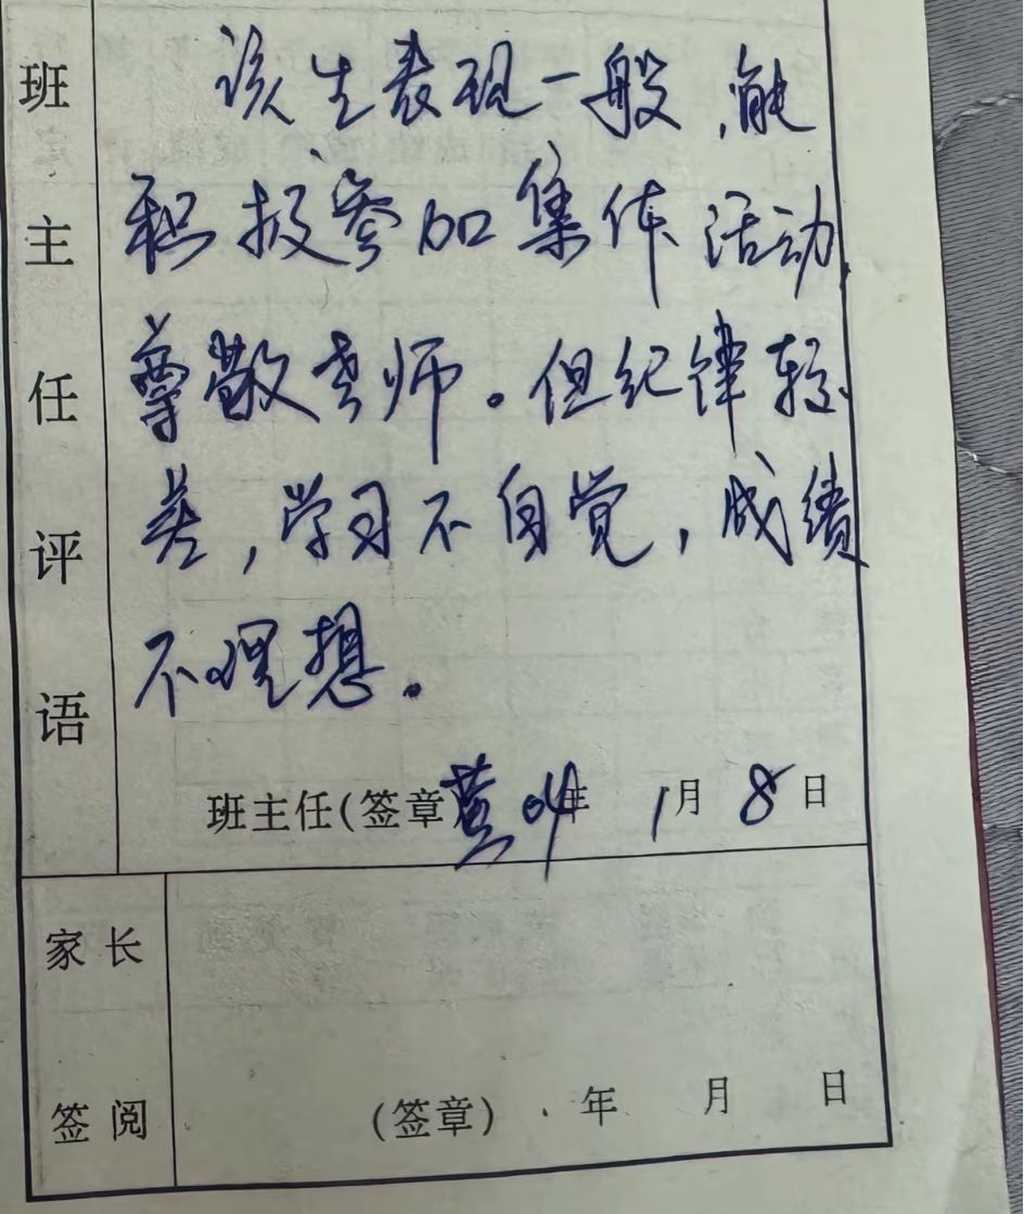 班主任评语
该生表现一般，能
积极参加集体活动，
尊敬老师。但纪律较
差，学习不自觉，成绩
不理想。
班主任(签章) 04年 1月 8日
家长
签阅
(签章) 年 月 日